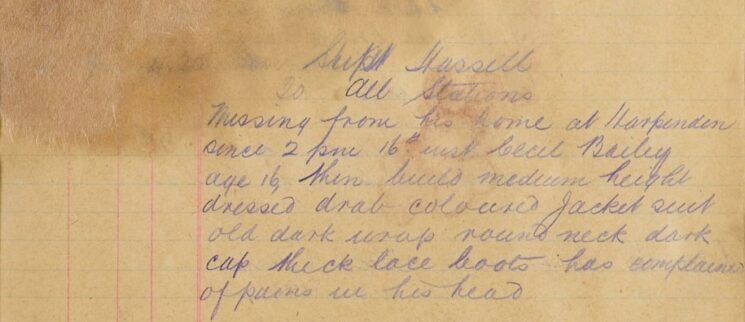 Supt Hassell
To All Stations
Missing from his home at Harpenden
since 2 pm 16th inst Cecil Bailey
age 16, thin build medium height
dressed drab coloured Jacket suit
old dark wrap round neck dark
cap thick lace boots has complained
of pains in his head